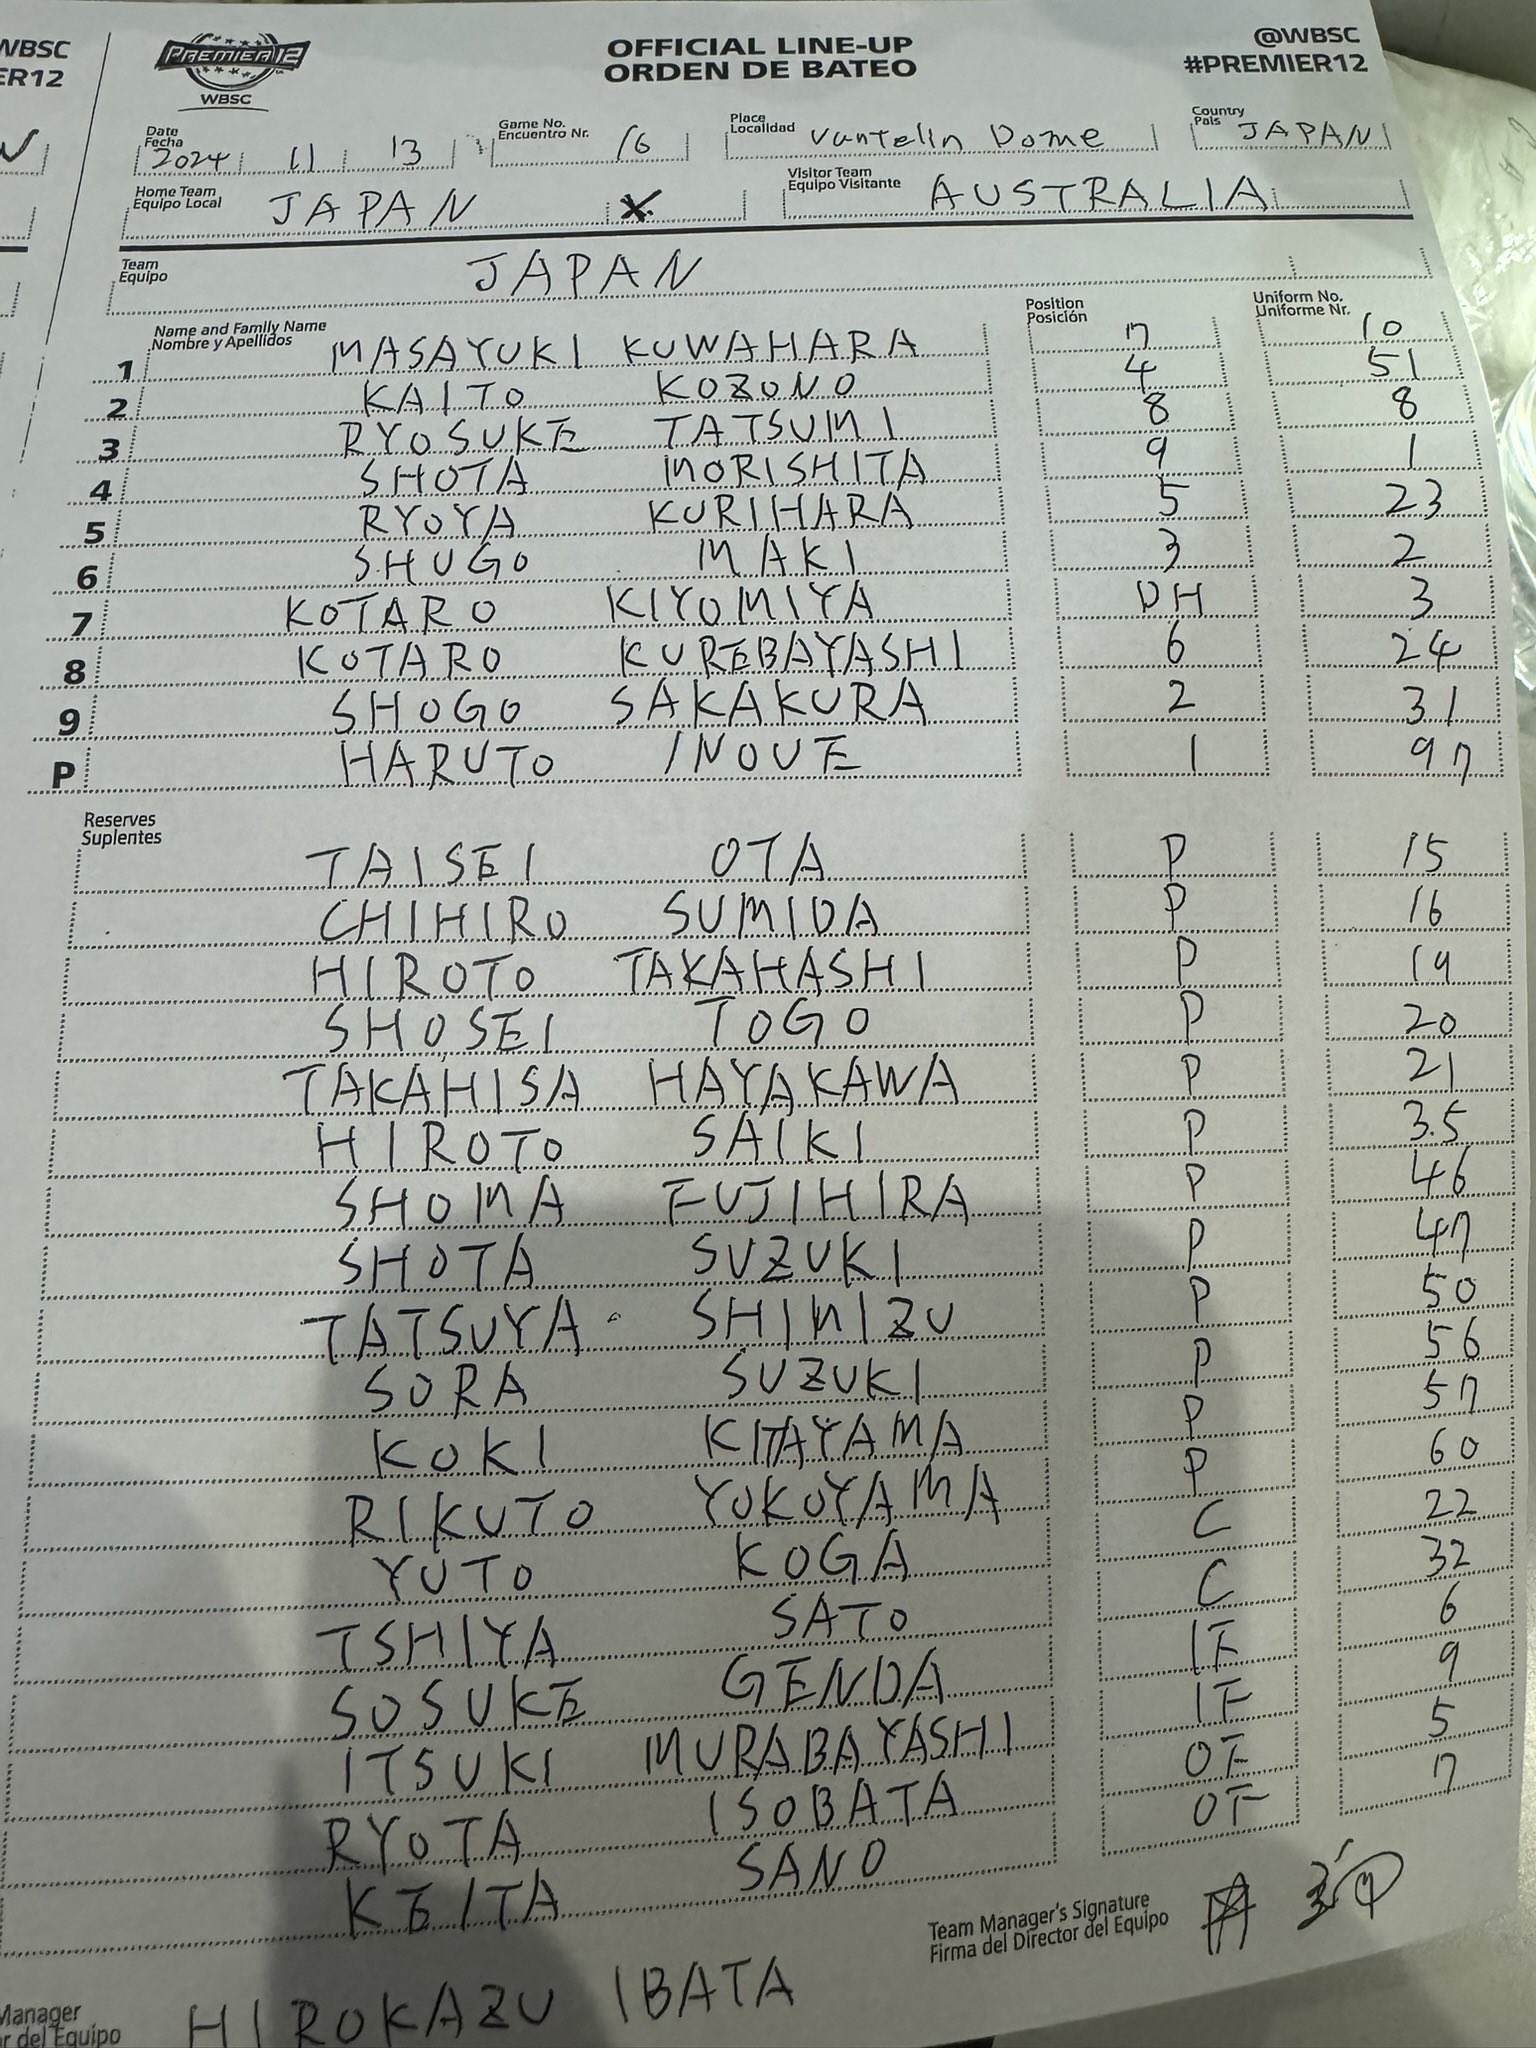 WBSC
ER12
PREMIER 12
WBSC
OFFICIAL LINE-UP
ORDEN DE BATEO
@WBSC
#PREMIER12
Date
Fecha
2024 11 13
Game No.
Encuentro Nr.
16
Place
Localidad
Vantelin Dome
Country
País
JAPAN
Home Team
Equipo Local
JAPAN X
Visitor Team
Equipo Visitante
AUSTRALIA
Team
Equipo
JAPAN
Name and Family Name
Nombre y Apellidos
Position
Posición
Uniform No.
Uniforme Nr.
1 MASAYUKI KUWAHARA 7 10
2 KAITO KOZONO 4 51
3 RYOSUKE TATSUMI 8 8
4 SHOTA MORISHITA 9 1
5 RYOYA KURIHARA 5 23
6 SHUGO MAKI 3 2
7 KOTARO KIYOMIYA DH 3
8 KOTARO KUREBAYASHI 6 24
9 SHOGO SAKAKURA 2 31
P HARUTO INOUE 1 97
Reserves
Suplentes
TAISEI OTA P 15
CHIHIRO SUMIDA P 16
HIROTO TAKAHASHI P 19
SHOSEI TOGO P 20
TAKAHISA HAYAKAWA P 21
HIROTO SAIKI P 35
SHOMA FUJIHIRA P 46
SHOTA SUZUKI P 47
TATSUYA SHIMIZU P 50
SORA SUZUKI P 56
KOKI KITAYAMA P 57
RIKUTO YOKOYAMA P 60
YUTO KOGA C 22
TSHIYA SATO C 32
SOSUKE GENDA IF 6
ITSUKI MURABAYASHI IF 9
RYOTA ISOBATA OF 5
KEITA SANO OF 7
Team Manager's Signature
Firma del Director del Equipo
Manager
r del Equipo
HIROKAZU IBATA